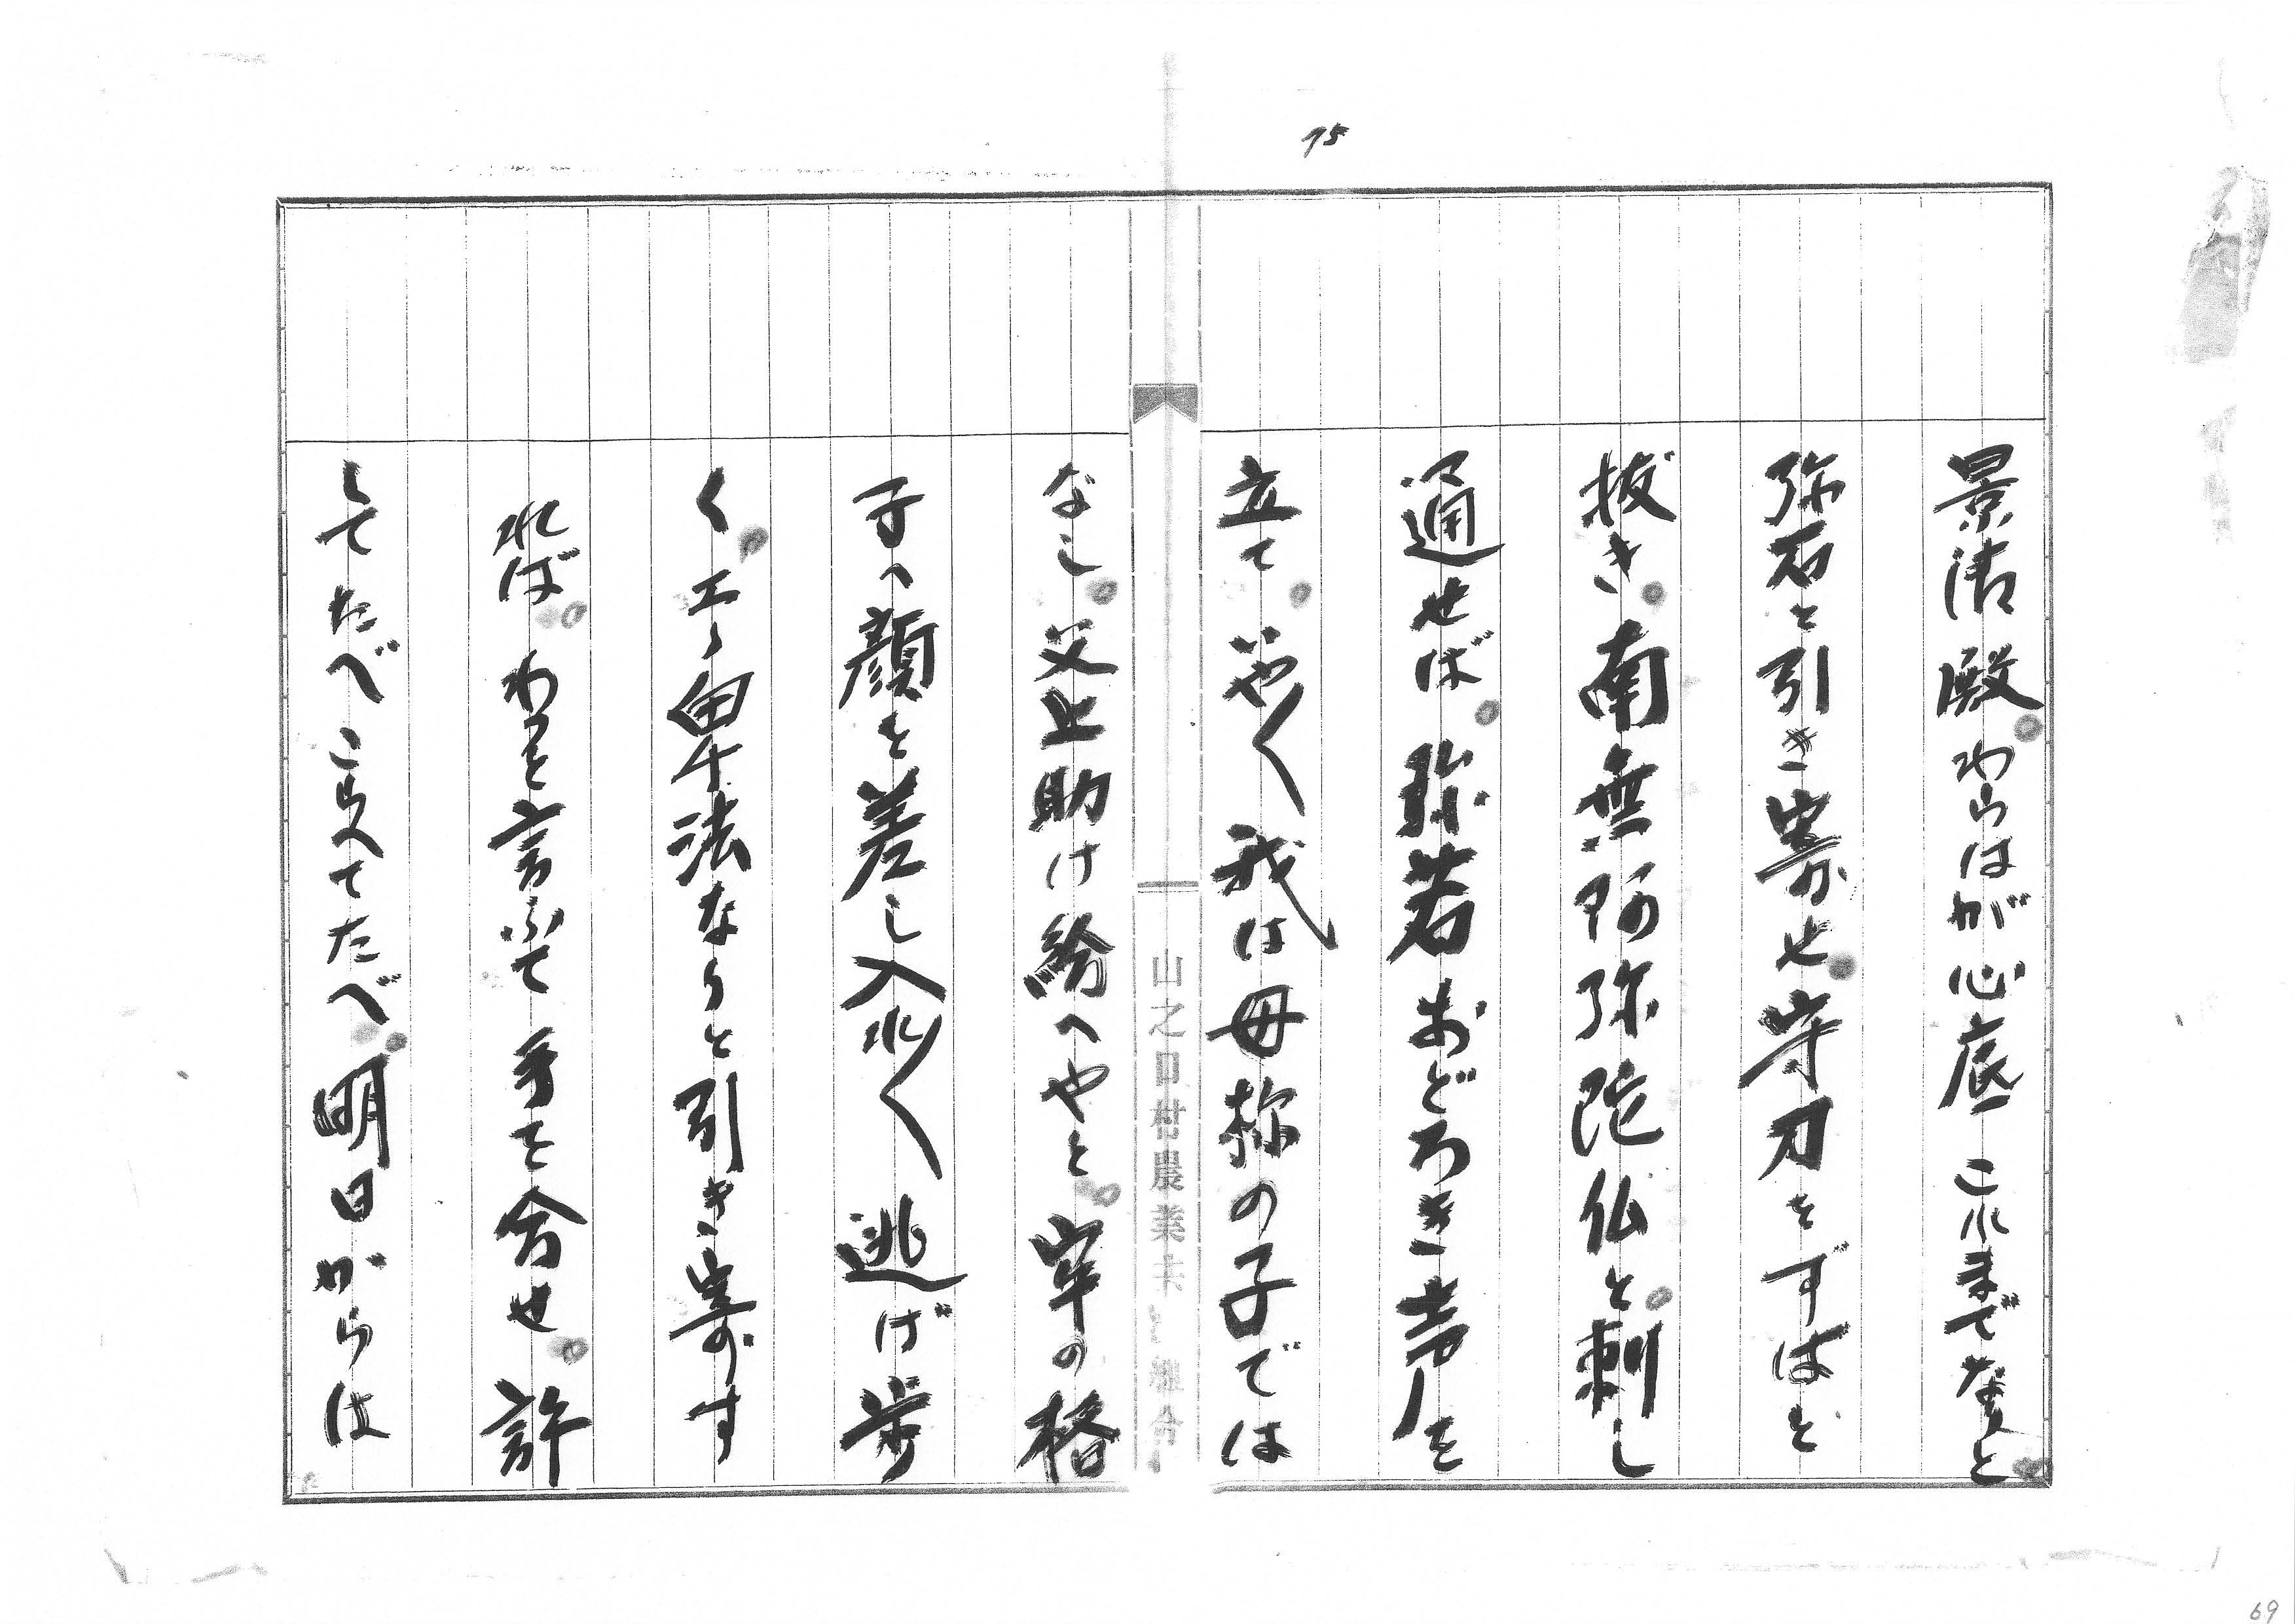 75
景清殿。わらはが心底これまでなりと
弥石を引き寄せ。守刀をずばと
抜き。南無阿弥陀仏と。刺し
通せば。弥若おどろき声を
立て。いや〱我は母称の子では
なし。父上助け給へやと。牢の格
子へ顔を差し入れ〱逃げ歩
く。エヽ卑法なりと引き寄す
れば。わっと言ふて手を合せ。許
してたべこらへてたべ。明日からは
山之口村農業共 組合
69